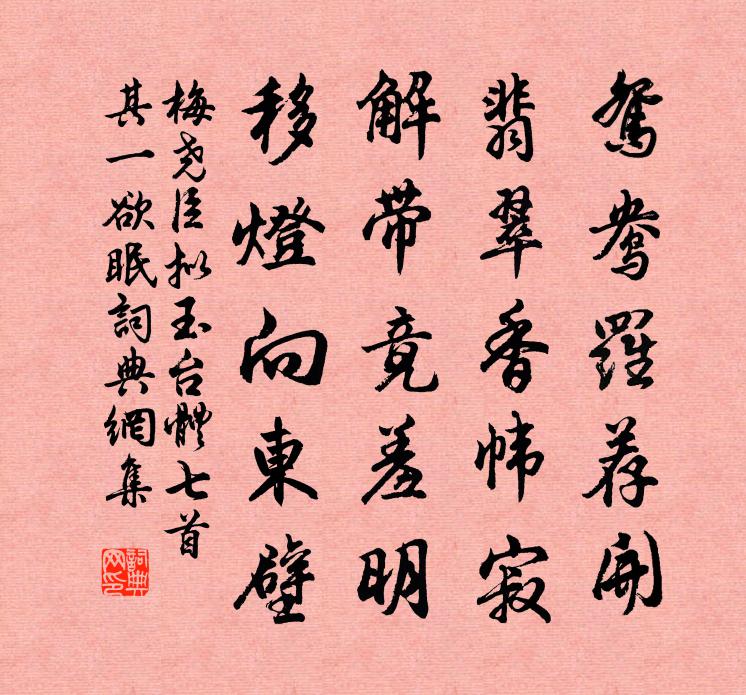 鴛鴦羅荐開
翡翠香幃寂
解带竟羞明
移燈向東壁
梅尧臣拟玉台體七首
其一欲眠詞典網集
詞典网印